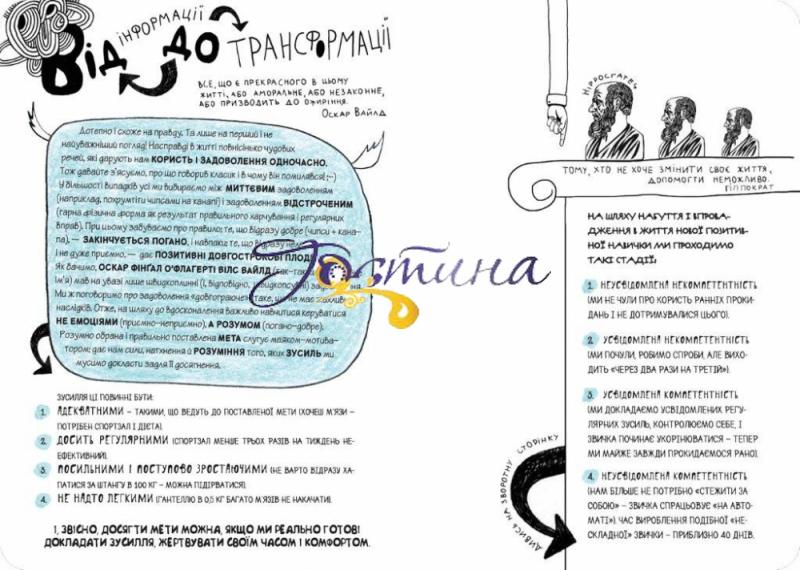 Від інформації до трансформації
ВСЕ, ЩО Є ПРЕКРАСНОГО В ЦЬОМУ
ЖИТТІ, АБО АМОРАЛЬНЕ, АБО НЕЗАКОННЕ,
АБО ПРИЗВОДИТЬ ДО ОЖИРІННЯ.
ОСКАР ВАЙЛД
Дотепно і схоже на правду. Та лише на перший і не
найуважніший погляд! Насправді в житті повнісінько чудових
речей, які дарують нам КОРИСТЬ І ЗАДОВОЛЕННЯ ОДНОЧАСНО.
Тож давайте з'ясуємо, про що говорив класик і в чому він помилявся! ;–)
У більшості випадків усі ми вибираємо між МИТТЄВИМ задоволенням
(наприклад, похрумтіти чипсами на канапі) і задоволенням ВІДСТРОЧЕНИМ
(гарна фізична форма як результат правильного харчування і регулярних
вправ). При цьому забуваємо про правило: те, що відразу добре (чипси + кана-
па), — ЗАКІНЧУЄТЬСЯ ПОГАНО, і навпаки: те, що відразу
і не дуже приємно, — дає ПОЗИТИВНІ ДОВГОСТРОКОВІ ПЛОДИ
Як бачимо, ОСКАР ФІНҐАЛ О'ФЛАГЕРТІ ВІЛС ВАЙЛД (так-так
ім'я) мав на увазі лише швидкоплинні (і, відповідно, швидкопсувні)
Ми ж поговоримо про задоволення «довгограюче» таке, що не має
наслідків. Отже, на шляху до вдосконалення важливо навчитися керуватися
НЕ ЕМОЦІЯМИ (приємно-неприємно), А РОЗУМОМ (погано-добре).
Розумно обрана і правильно поставлена МЕТА слугує маяком-мотива-
тором: дає нам сили, натхнення й РОЗУМІННЯ того, яких ЗУСИЛЬ ми
мусимо докласти задля її досягнення.
ЗУСИЛЛЯ ЦІ ПОВИННІ БУТИ:
1. АДЕКВАТНИМИ – ТАКИМИ, ЩО ВЕДУТЬ ДО ПОСТАВЛЕНОЇ МЕТИ (ХОЧЕШ М'ЯЗИ –
ПОТРІБЕН СПОРТЗАЛ І ДІЄТА).
2. ДОСИТЬ РЕГУЛЯРНИМИ (СПОРТЗАЛ МЕНШЕ ТРЬОХ РАЗІВ НА ТИЖДЕНЬ НЕ-
ЕФЕКТИВНИЙ).
3. ПОСИЛЬНИМИ І ПОСТУПОВО ЗРОСТАЮЧИМИ (НЕ ВАРТО ВІДРАЗУ ХА-
ПАТИСЯ ЗА ШТАНГУ В 100 КГ – МОЖНА ПІДІРВАТИСЯ).
4. НЕ НАДТО ЛЕГКИМИ (ГАНТЕЛЛЮ В 0,5 КГ БАГАТО М'ЯЗІВ НЕ НАКАЧАТИ).
І, ЗВІСНО, ДОСЯГТИ МЕТИ МОЖНА, ЯКЩО МИ РЕАЛЬНО ГОТОВІ
ДОКЛАДАТИ ЗУСИЛЛЯ, ЖЕРТВУВАТИ СВОЇМ ЧАСОМ І КОМФОРТОМ.
Гостина
ТОМУ, ХТО НЕ ХОЧЕ ЗМІНИТИ СВОЄ ЖИТТЯ,
ДОПОМОГТИ НЕМОЖЛИВО.
ГІППОКРАТ
НА ШЛЯХУ НАБУТТЯ І ВПРОВА-
ДЖЕННЯ В ЖИТТЯ НОВОЇ ПОЗИТИВ-
НОЇ НАВИЧКИ МИ ПРОХОДИМО
ТАКІ СТАДІЇ:
1. НЕУСВІДОМЛЕНА НЕКОМПЕТЕНТНІСТЬ
(МИ НЕ ЧУЛИ ПРО КОРИСТЬ РАННІХ ПРОКИ-
ДАНЬ І НЕ ДОТРИМУВАЛИСЯ ЦЬОГО).
2. УСВІДОМЛЕНА НЕКОМПЕТЕНТНІСТЬ
(МИ ПОЧУЛИ, РОБИМО СПРОБИ, АЛЕ ВИХО-
ДИТЬ «ЧЕРЕЗ ДВА РАЗИ НА ТРЕТІЙ»).
3. УСВІДОМЛЕНА КОМПЕТЕНТНІСТЬ
(МИ ДОКЛАДАЄМО УСВІДОМЛЕНИХ РЕГУ-
ЛЯРНИХ ЗУСИЛЬ, КОНТРОЛЮЄМО СЕБЕ, І
ЗВИЧКА ПОЧИНАЄ УКОРІНЮВАТИСЯ – ТЕПЕР
МИ МАЙЖЕ ЗАВЖДИ ПРОКИДАЄМОСЯ РАНО).
4. НЕУСВІДОМЛЕНА КОМПЕТЕНТНІСТЬ
(НАМ БІЛЬШЕ НЕ ПОТРІБНО «СТЕЖИТИ ЗА
СОБОЮ» – ЗВИЧКА СПРАЦЬОВУЄ «НА АВТО-
МАТІ»). ЧАС ВИРОБЛЕННЯ ПОДІБНОЇ «НЕ-
СКЛАДНОЇ» ЗВИЧКИ – ПРИБЛИЗНО 40 ДНІВ.
ДИВИСЬ НА ЗВОРОТНУ СТОРІНКУ